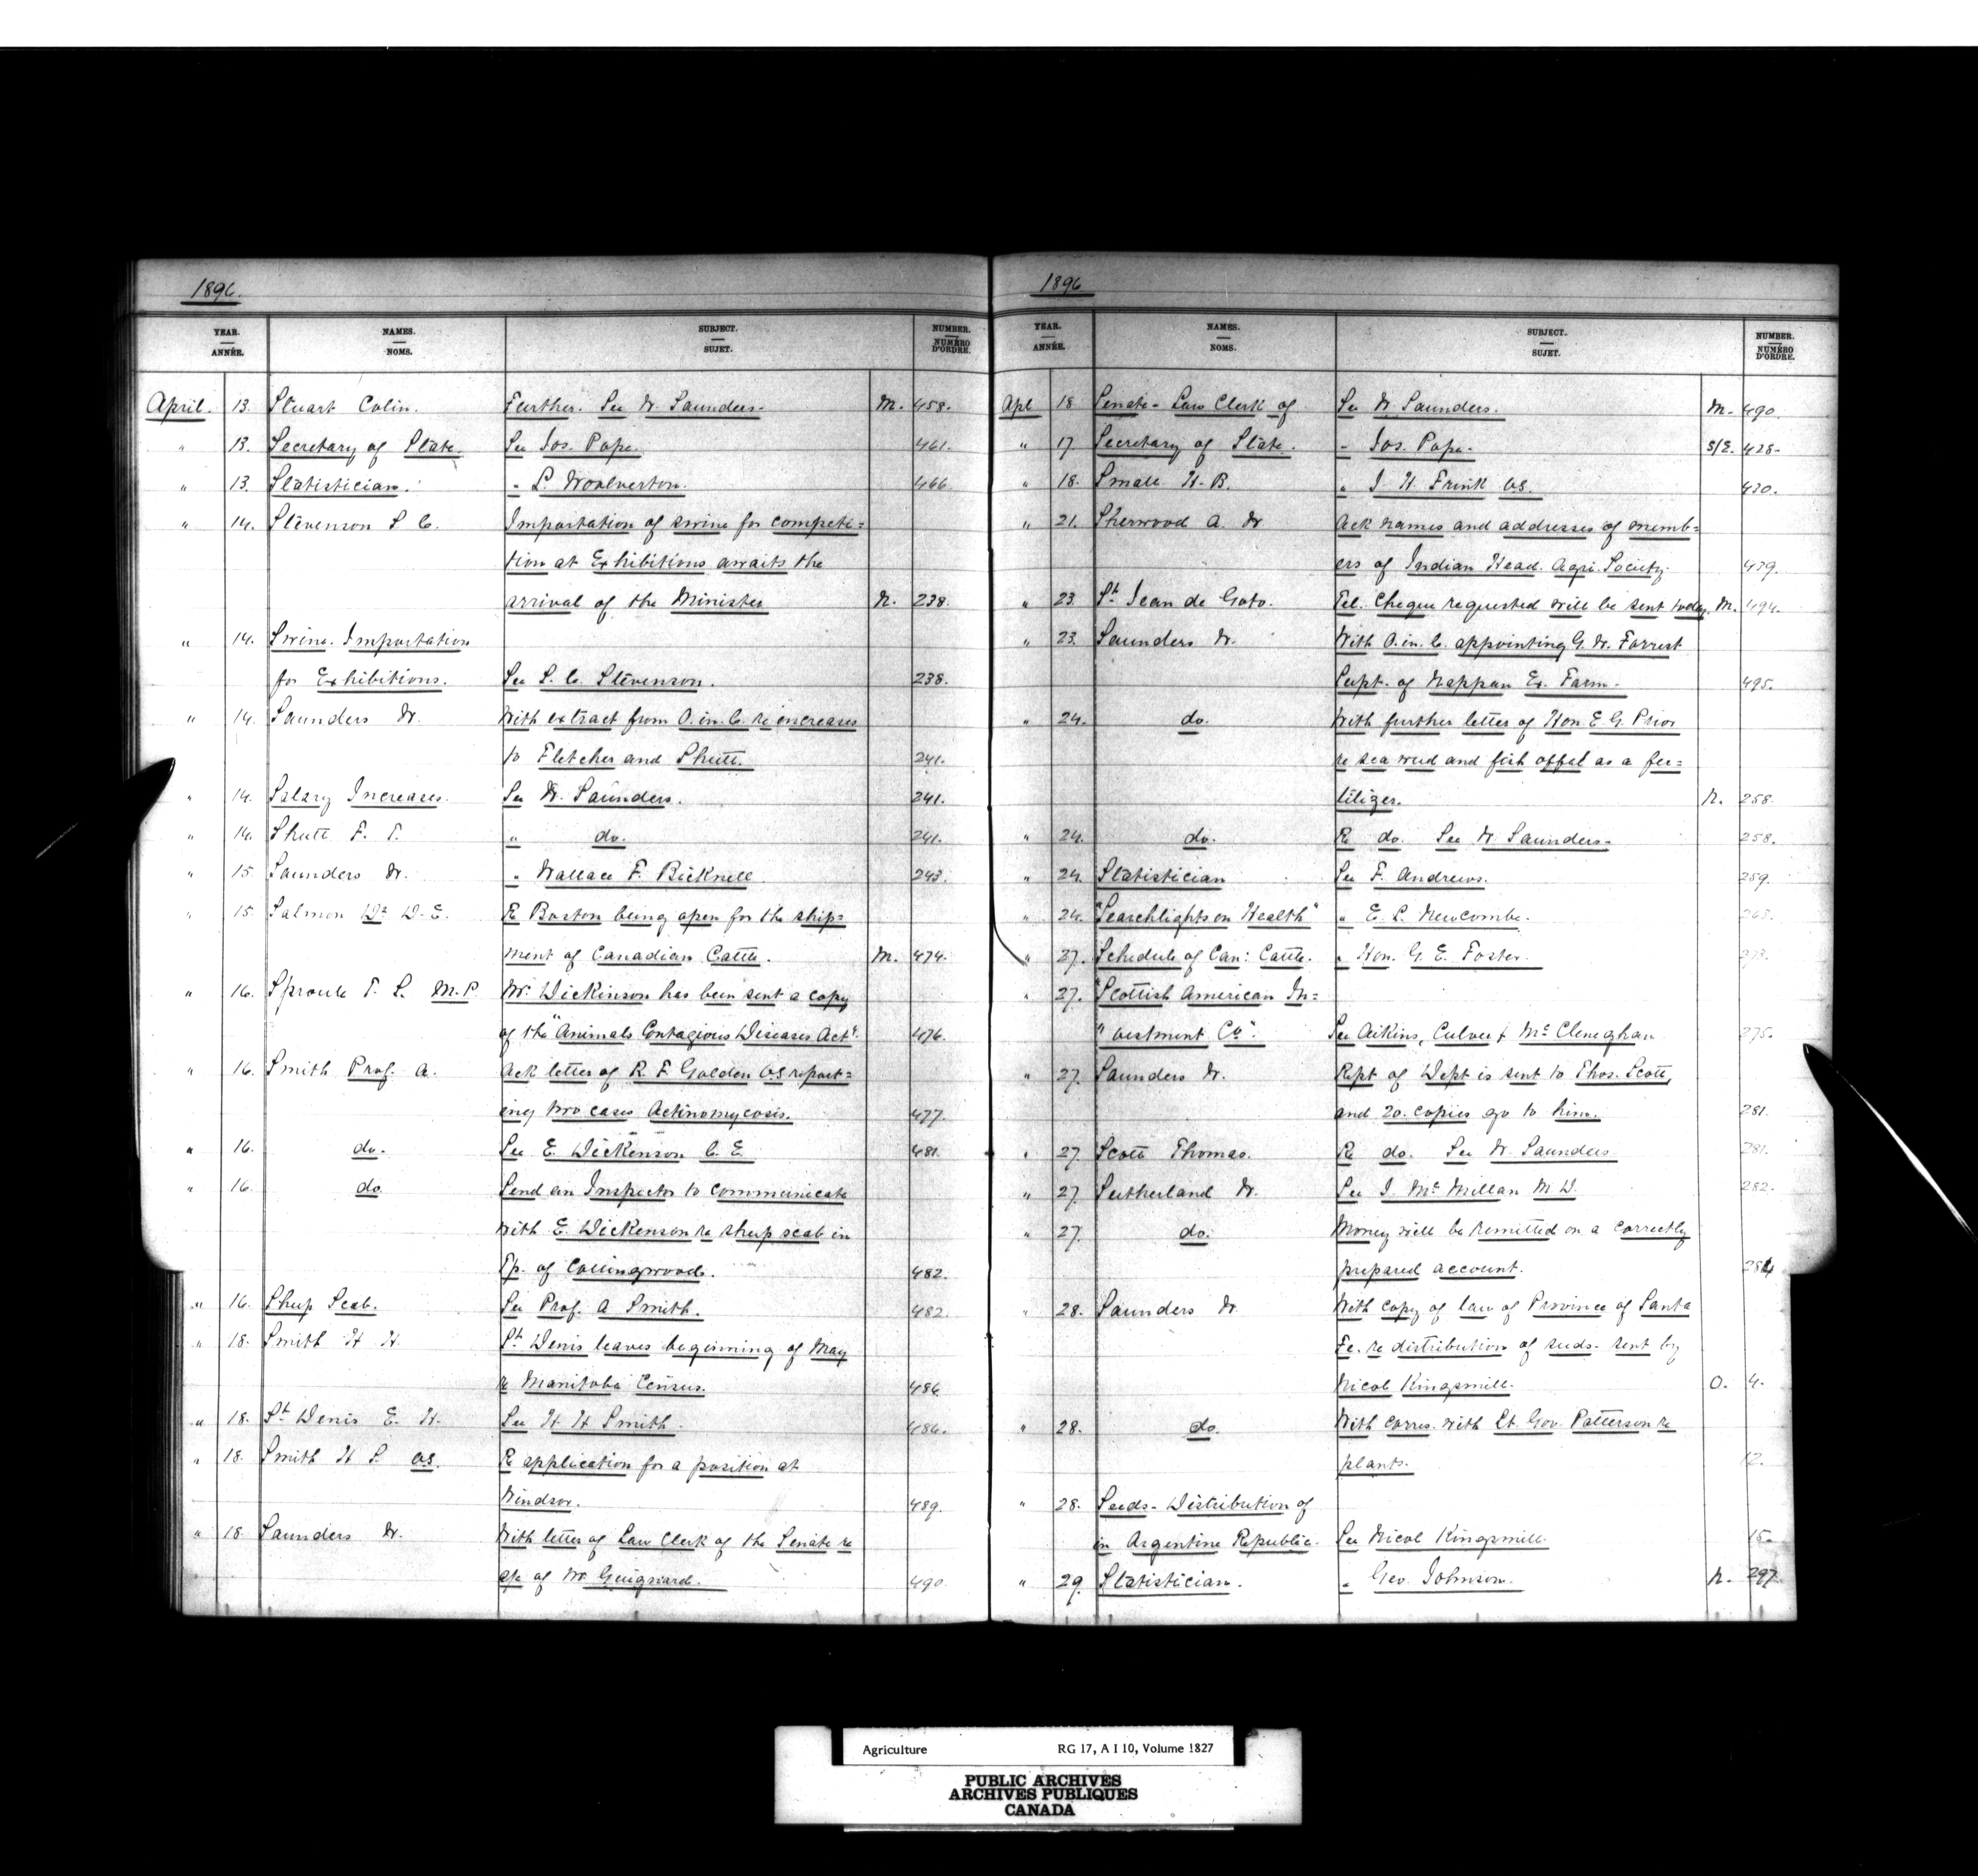 1896.
YEAR. ANNÉE. NAMES. NOMS. SUBJECT. SUJET. NUMBER. NUMÉRO D'ORDRE.
April. 13. Stuart Colin. Further. See W. Saunders. M. 458.
" 13. Secretary of State. See Jos. Pope. 461.
" 13. Statistician. " L. Woolverton. 466
" 14. Stevenson S C. Importation of swine for competi=
tion at Exhibitions awaits the
arrival of the Minister N. 238.
" 14. Swine. Importation
for Exhibitions. See S. C. Stevenson. 238.
" 14. Saunders W. With extract from O. in. C. re increases
to Fletcher and Shutt. 241.
" 14. Salary Increases. See W. Saunders. 241.
" 14. Shutt F. T. " do. 241.
" 15. Saunders W. " Wallace F. Bicknell 243.
" 15. Salmon Dr D. E. Re Boston being open for the ship=
ment of Canadian Cattle. M. 474.
" 16. Sproule T. S. M.P. Mr. Dickinson has been sent a copy
of the "Animals Contagious Diseases Act". 476.
" 16. Smith Prof. A. Ack letter of R. F. Golden V.S report=
ing two cases Actinomycosis. 477.
" 16. do. See E. Dickenson C. E. 481.
" 16. do Send an Inspector to communicate
with E. Dickenson re sheep scab in
Tp. of Collingwood. 482.
" 16. Sheep Scab. See Prof. A Smith. 482
" 18. Smith H H. St Denis leaves beginning of May
re Manitoba Census. 486
" 18. St Denis E. H. See H. H Smith. 486.
" 18. Smith H S. V.S. Re application for a position at
Windsor. 489.
" 18. Saunders W. With letter of Law Clerk of the Senate re
a/c of Mr Guignard. 490
1896
YEAR. ANNÉE. NAMES. NOMS. SUBJECT. SUJET. NUMBER. NUMÉRO D'ORDRE.
Apl 18 Senate - Law Clerk of See W Saunders. M. 490.
" 17. Secretary of State. " Jos. Pope. S/E. 428.
" 18. Small H. B. " J H. Frink V.S. 430.
" 21. Sherwood A. W Ack names and addresses of memb=
ers of Indian Head. Agri. Society. 439.
" 23. St Jean de Goto. Tel. Cheque requested will be sent today. M. 494.
" 23. Saunders W. With O. in. C. appointing G. W. Forrest
Supt. of Nappan Ex. Farm. 495.
" 24. do. With further letter of Hon. E G. Prior
re sea weed and fish offal as a fer=
tilizer. N. 258.
" 24. do. Re do. See W Saunders. 258.
" 24. Statistician See F. Andrews. 259.
" 24. "Searchlights on Health" " E. L. Newcombe. 265.
" 27. Schedule of Can: Cattle. " Hon. G. E. Foster. 273.
" 27. "Scottish American In=
"vestment Co". See Aikins, Culver & McCleneghan 275.
" 27. Saunders W. Rept of Dept is sent to Thos. Scott,
and 20. copies go to him. 281.
" 27. Scott Thomas. Re do. See W. Saunders. 281.
" 27. Sutherland W. See J McMillan M D. 282.
" 27. do. Money will be remitted on a correctly
prepared account. 284
" 28. Saunders W. With copy of law of Province of Santa
Fe. re distribution of seeds. sent by
Nicol Kingsmill. O. 4.
" 28. do. With corres. with Lt. Gov. Patterson re
plants. 12.
" 28. Seeds - Distribution of
in Argentine Republic. See Nicol Kingsmill. 15.
" 29. Statistician. " Geo. Johnson. N. 297.
Agriculture RG 17, A I 10, Volume 1827
PUBLIC ARCHIVES
ARCHIVES PUBLIQUES
CANADA